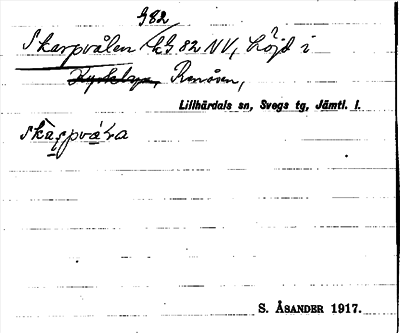 G82
Skarpvålen kG. 82 NV, höjd i
Kyrkbyn, Renåsen,
Lillhärdals sn, Svegs tg, Jämtl. l.
skarpvåɫa
S. ÅSANDER 1917.